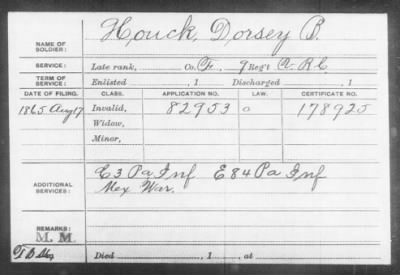 Houck, Dorsey B.
NAME OF SOLDIER:
SERVICE: Late rank, Co. F, 9 Reg't V.R.C.
TERM OF SERVICE: Enlisted , 1 Discharged , 1
DATE OF FILING. CLASS. APPLICATION NO. LAW. CERTIFICATE NO.
1865 Aug 17 Invalid, 82953 0 178925
Widow,
Minor,
ADDITIONAL SERVICES: C 3 Pa Inf E 84 Pa Inf
Mex War.
REMARKS:
M. M.
Died , 1 , at